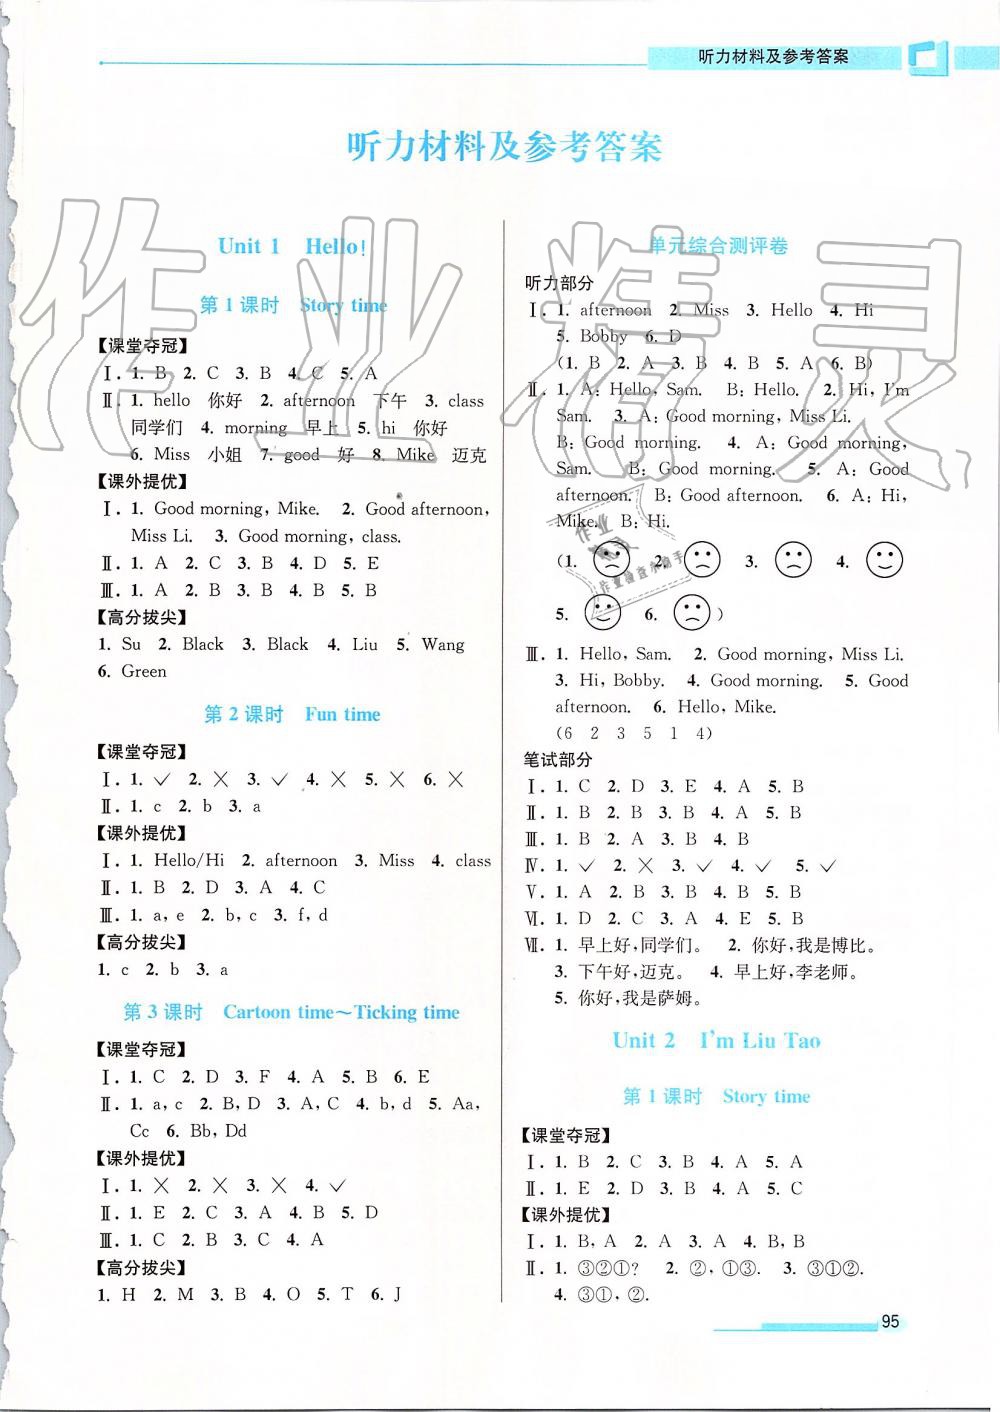 听力材料及参考答案
听力材料及参考答案
Unit 1 Hello!
第 1 课时 Story time
【课堂夺冠】
Ⅰ. 1. B 2. C 3. B 4. C 5. A
Ⅱ. 1. hello 你好 2. afternoon 下午 3. class
同学们 4. morning 早上 5. hi 你好
6. Miss 小姐 7. good 好 8. Mike 迈克
【课外提优】
Ⅰ. 1. Good morning, Mike. 2. Good afternoon,
Miss Li. 3. Good morning, class.
Ⅱ. 1. A 2. C 3. B 4. D 5. E
Ⅲ. 1. A 2. B 3. B 4. B 5. B
【高分拔尖】
1. Su 2. Black 3. Black 4. Liu 5. Wang
6. Green
第 2 课时 Fun time
【课堂夺冠】
Ⅰ. 1. ✓ 2. ✕ 3. ✓ 4. ✕ 5. ✕ 6. ✕
Ⅱ. 1. c 2. b 3. a
【课外提优】
Ⅰ. 1. Hello/Hi 2. afternoon 3. Miss 4. class
Ⅱ. 1. B 2. D 3. A 4. C
Ⅲ. 1. a, e 2. b, c 3. f, d
【高分拔尖】
1. c 2. b 3. a
第 3 课时 Cartoon time～Ticking time
【课堂夺冠】
Ⅰ. 1. C 2. D 3. F 4. A 5. B 6. E
Ⅱ. 1. a, c 2. B, D 3. A, C 4. b, d 5. Aa,
Cc 6. Bb, Dd
【课外提优】
Ⅰ. 1. ✕ 2. ✕ 3. ✕ 4. ✓
Ⅱ. 1. E 2. C 3. A 4. B 5. D
Ⅲ. 1. C 2. B 3. C 4. A
【高分拔尖】
1. H 2. M 3. B 4. O 5. T 6. J
单元综合测评卷
听力部分
Ⅰ. 1. afternoon 2. Miss 3. Hello 4. Hi
5. Bobby 6. D
(1. B 2. A 3. B 4. B 5. A 6. B)
Ⅱ. 1. A: Hello, Sam. B: Hello. 2. Hi, I'm
Sam. 3. A: Good morning, Miss Li.
B: Good morning. 4. A: Good morning,
Sam. B: Good morning. 5. A: Good
afternoon. B: Good afternoon. 6. A: Hi,
Mike. B: Hi.
(1. 2. 3. 4.
5. 6. )
Ⅲ. 1. Hello, Sam. 2. Good morning, Miss Li.
3. Hi, Bobby. 4. Good morning. 5. Good
afternoon. 6. Hello, Mike.
(6 2 3 5 1 4)
笔试部分
Ⅰ. 1. C 2. D 3. E 4. A 5. B
Ⅱ. 1. B 2. B 3. B 4. A 5. B
Ⅲ. 1. B 2. A 3. B 4. B
Ⅳ. 1. ✓ 2. ✕ 3. ✓ 4. ✓ 5. ✓
Ⅴ. 1. A 2. B 3. B 4. A 5. B
Ⅵ. 1. D 2. C 3. A 4. E 5. B
Ⅶ. 1. 早上好,同学们。 2. 你好,我是博比。
3. 下午好,迈克。 4. 早上好,李老师。
5. 你好,我是萨姆。
Unit 2 I'm Liu Tao
第 1 课时 Story time
【课堂夺冠】
Ⅰ. 1. B 2. C 3. B 4. A 5. A
Ⅱ. 1. E 2. D 3. B 4. A 5. C
【课外提优】
Ⅰ. 1. B, A 2. A 3. A 4. B, B
Ⅱ. 1. ③②①? 2. ②, ①③. 3. ③①②.
4. ③①, ②.
95
作业精灵